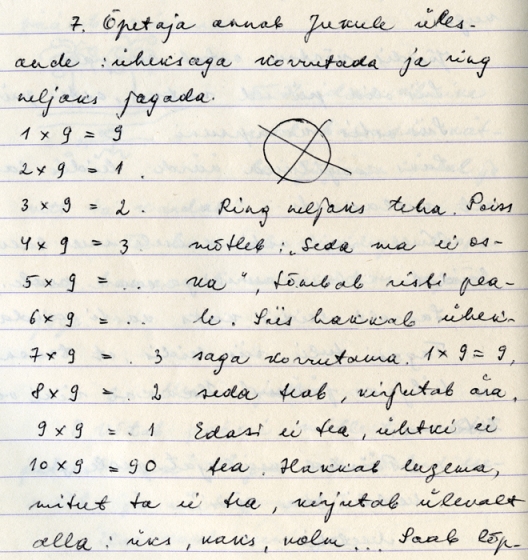 7. Õpetaja annab Jukule üles-
ande: üheksaga korrutada ja ring
neljaks jagada.
1 x 9 = 9
2 x 9 = 1.
3 x 9 = 2. Ring neljaks teha. Poiss
4 x 9 = 3. mõtleb: „Seda ma ei os-
5 x 9 = ... ka", tõmbab risti pea-
6 x 9 = ... le. Siis hakkab ühek-
7 x 9 = . 3 saga korrutama. 1 x 9 = 9,
8 x 9 = 2 seda teab, kirjutab ära.
9 x 9 = 1 Edasi ei tea, ühtki ei
10 x 9 = 90 tea. Hakkab lugema,
mitut ta ei tea, kirjutab ülevalt
alla: üks, kaks, kolm... Saab lõp-